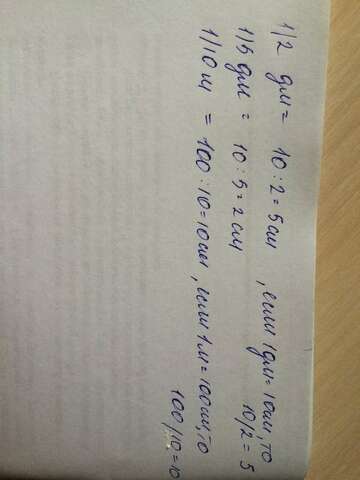 1/2 дм = 10 : 2 = 5 см, если 1 дм = 10 см, то
10/2 = 5
1/5 дм = 10 : 5 = 2 см
1/10 м = 100 : 10 = 10 см, если 1 м = 100 см, то
100/10 = 10